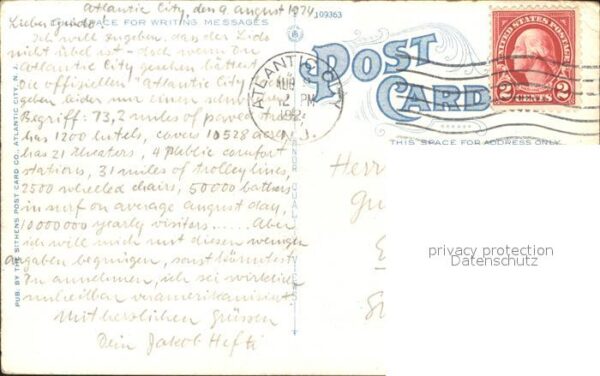 Atlantic City, den 9 August 1924
Lieber Guido!
SPACE FOR WRITING MESSAGES
109363
Ich will zugeben, dass der Lido
nicht übel ist - doch wenn Du
Atlantic City gesehen hättest
Die offiziellen "Atlantic City
geben leider nur einen schwachen
Begriff: 73,2 miles of paved streets
has 1200 hotels, covers 10528 acres
has 21 theaters, 4 public comfort
stations, 31 miles of trolley lines,
2500 wheeled chairs, 50000 bathers
in surf on average august day,
10000000 yearly visitors...... Aber
ich will mich mit diesen wenigen
angaben begnügen, sonst könntest
Du annehmen, ich sei wirklich
unheilbar veramerikanisiert.
Mit herzlichen Grüssen
Dein Jakob Hefti
PUB. BY THE SITHENS POST CARD CO., ATLANTIC CITY, N. J.
ATLANTIC CITY
AUG
2 PM
N. J.
POST
CARD
UNITED STATES POSTAGE
2 CENTS 2
THIS SPACE FOR ADDRESS ONLY.
Herr
privacy protection
Datenschutz